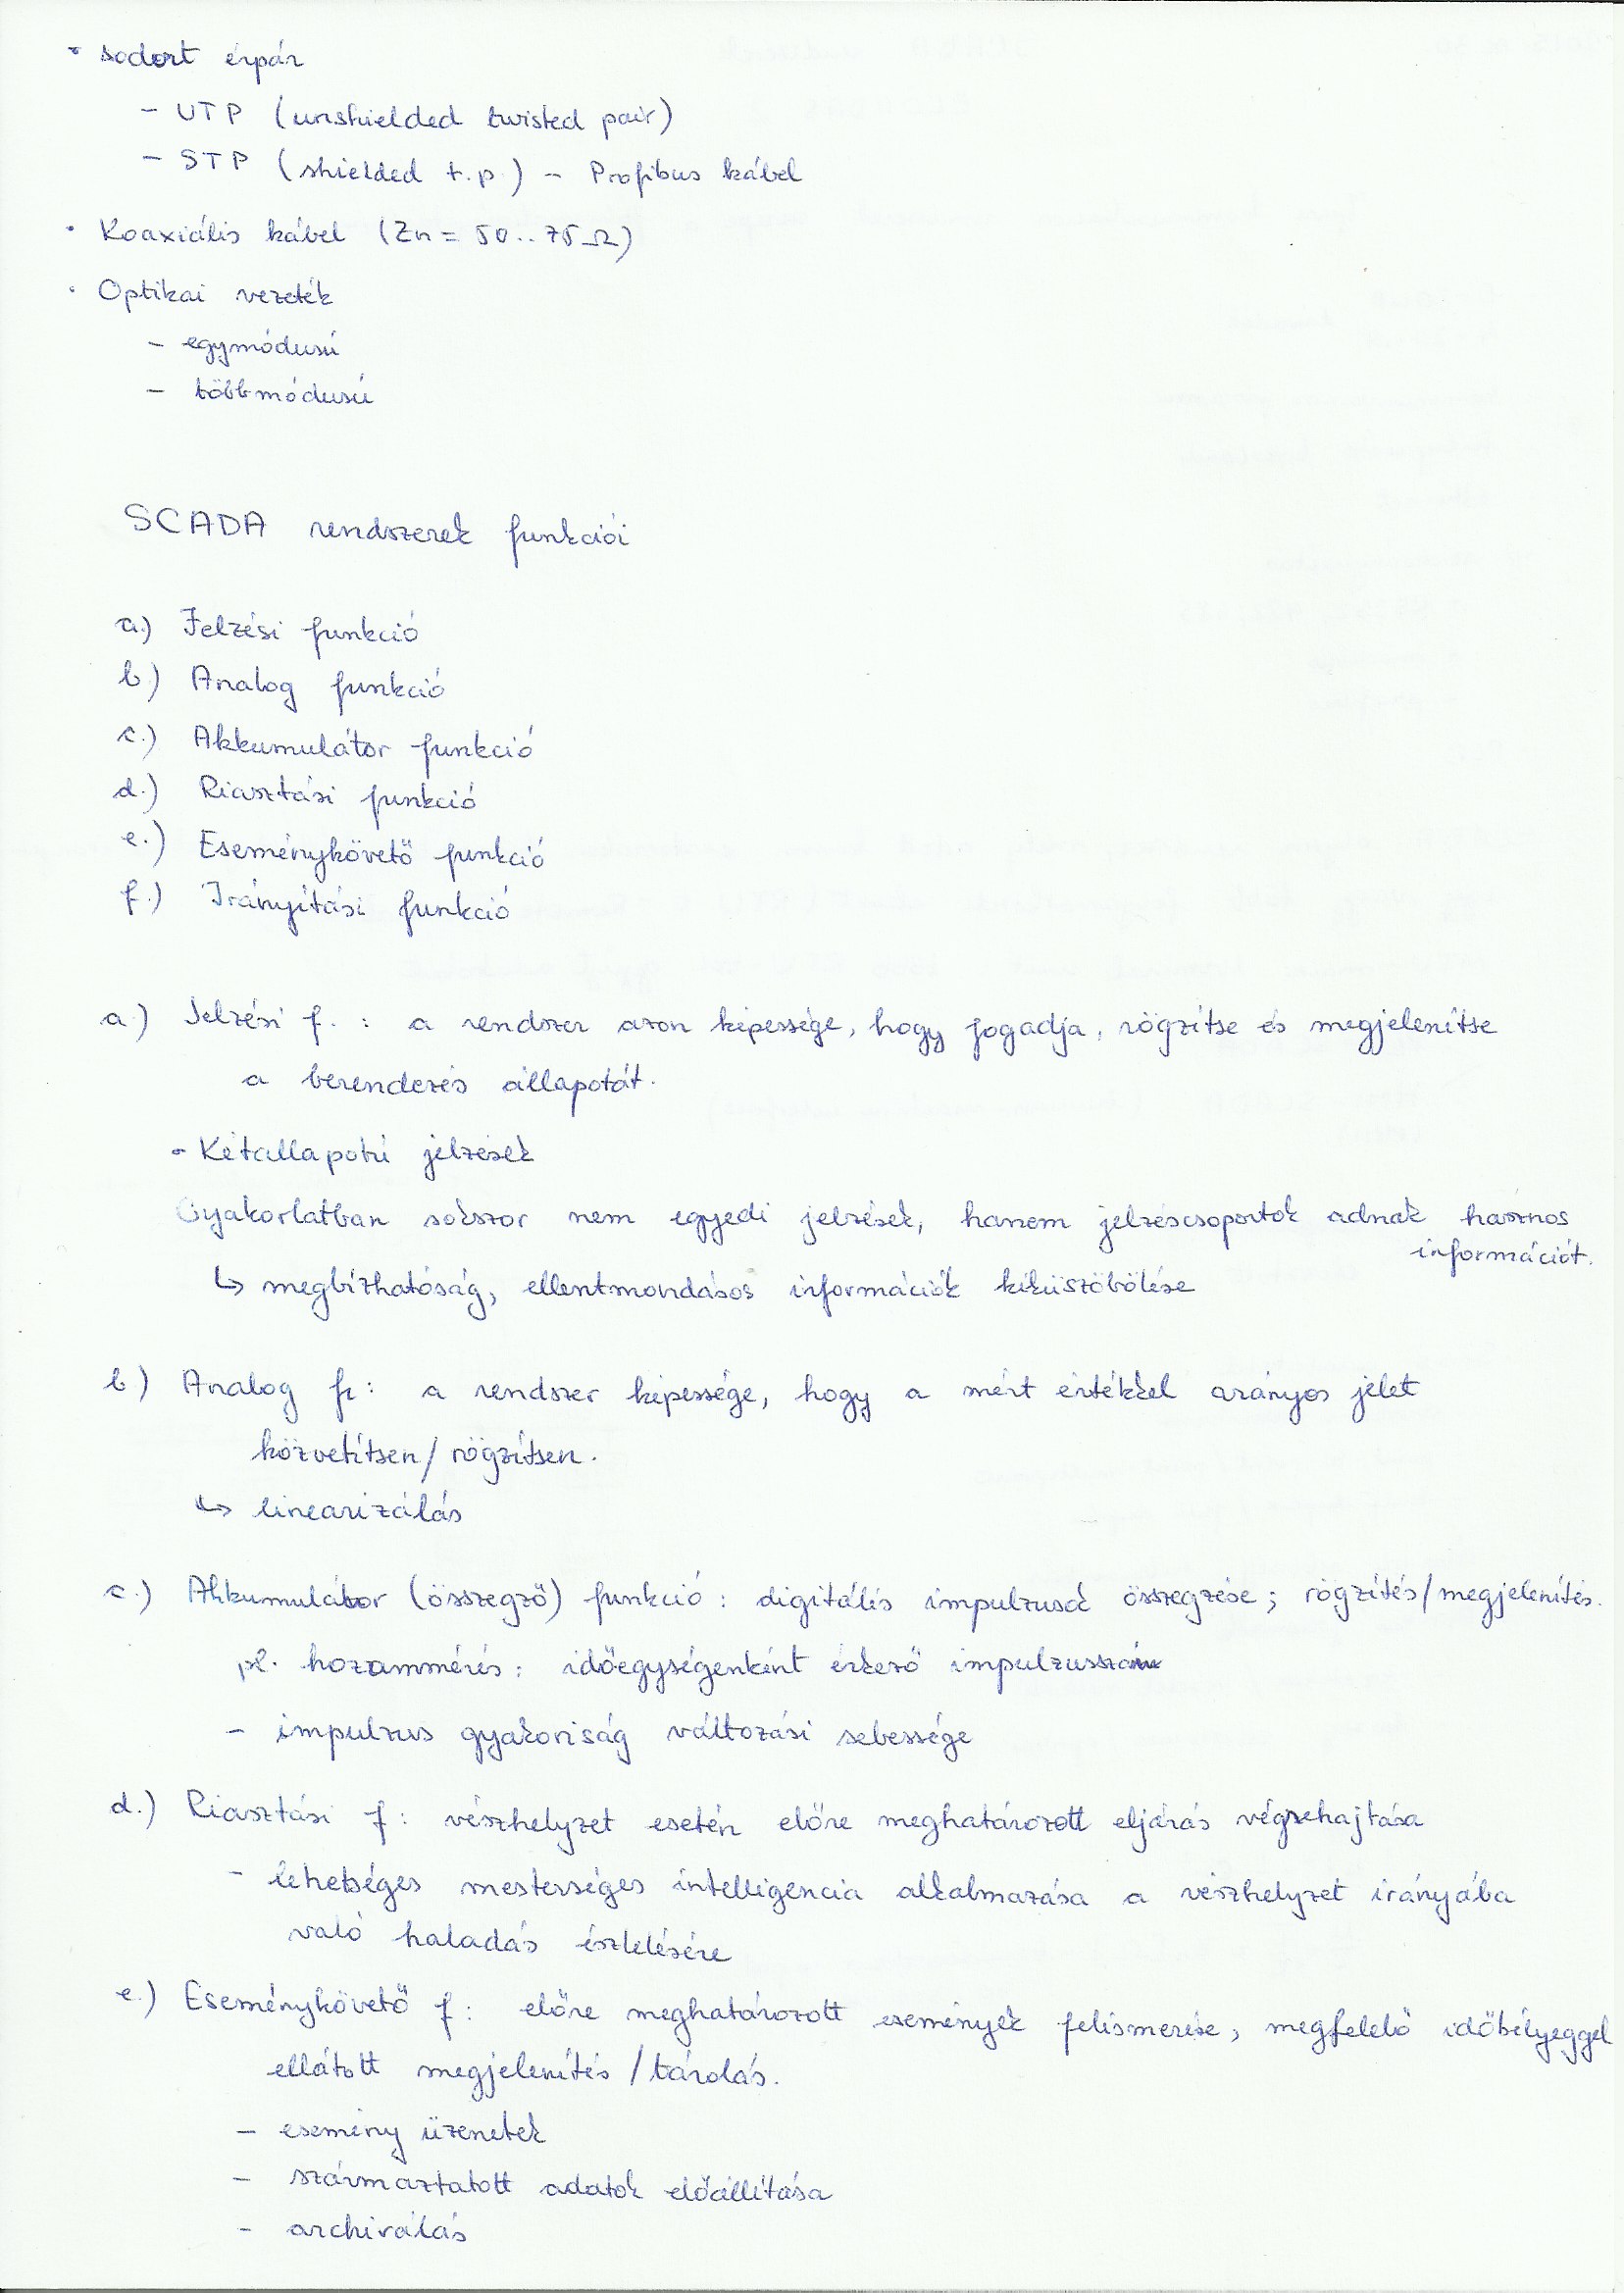 • sodort érpár
– UTP (unshielded twisted pair)
– STP (shielded t.p.) – Profibus kábel
• Koaxiális kábel (Zn = 50..75 Ω)
• Optikai vezeték
– egymódusú
– többmódusú
SCADA rendszerek funkciói
a.) Jelzési funkció
b.) Analog funkció
c.) Akkumulátor funkció
d.) Riasztási funkció
e.) Eseménykövető funkció
f.) Irányítási funkció
a.) Jelzési f. : a rendszer azon képessége, hogy fogadja, rögzítse és megjelenítse
a berendezés állapotát.
- Kétállapotú jelzések
Gyakorlatban sokszor nem egyedi jelzések, hanem jelzéscsoportok adnak hasznos
információt.
↳ megbízhatóság, ellentmondásos információk kiküszöbölése
b) Analog f: a rendszer képessége, hogy a mért értékkel arányos jelet
közvetítsen/rögzítsen.
↳ linearizálás
c.) Akkumulátor (összegző) funkció : digitális impulzusok összegzése ; rögzítés/megjelenítés.
pl. hozammérés: időegységenként érkező impulzusszám
– impulzus gyakoriság változási sebessége
d.) Riasztási f: vészhelyzet esetén előre meghatározott eljárás végrehajtása
– lehetséges mesterséges intelligencia alkalmazása a vészhelyzet irányába
való haladás észlelésére
e.) Eseménykövető f: előre meghatározott események felismerése, megfelelő időbélyeggel
ellátott megjelenítés / tárolás.
– esemény üzenetek
– származtatott adatok előállítása
– archiválás